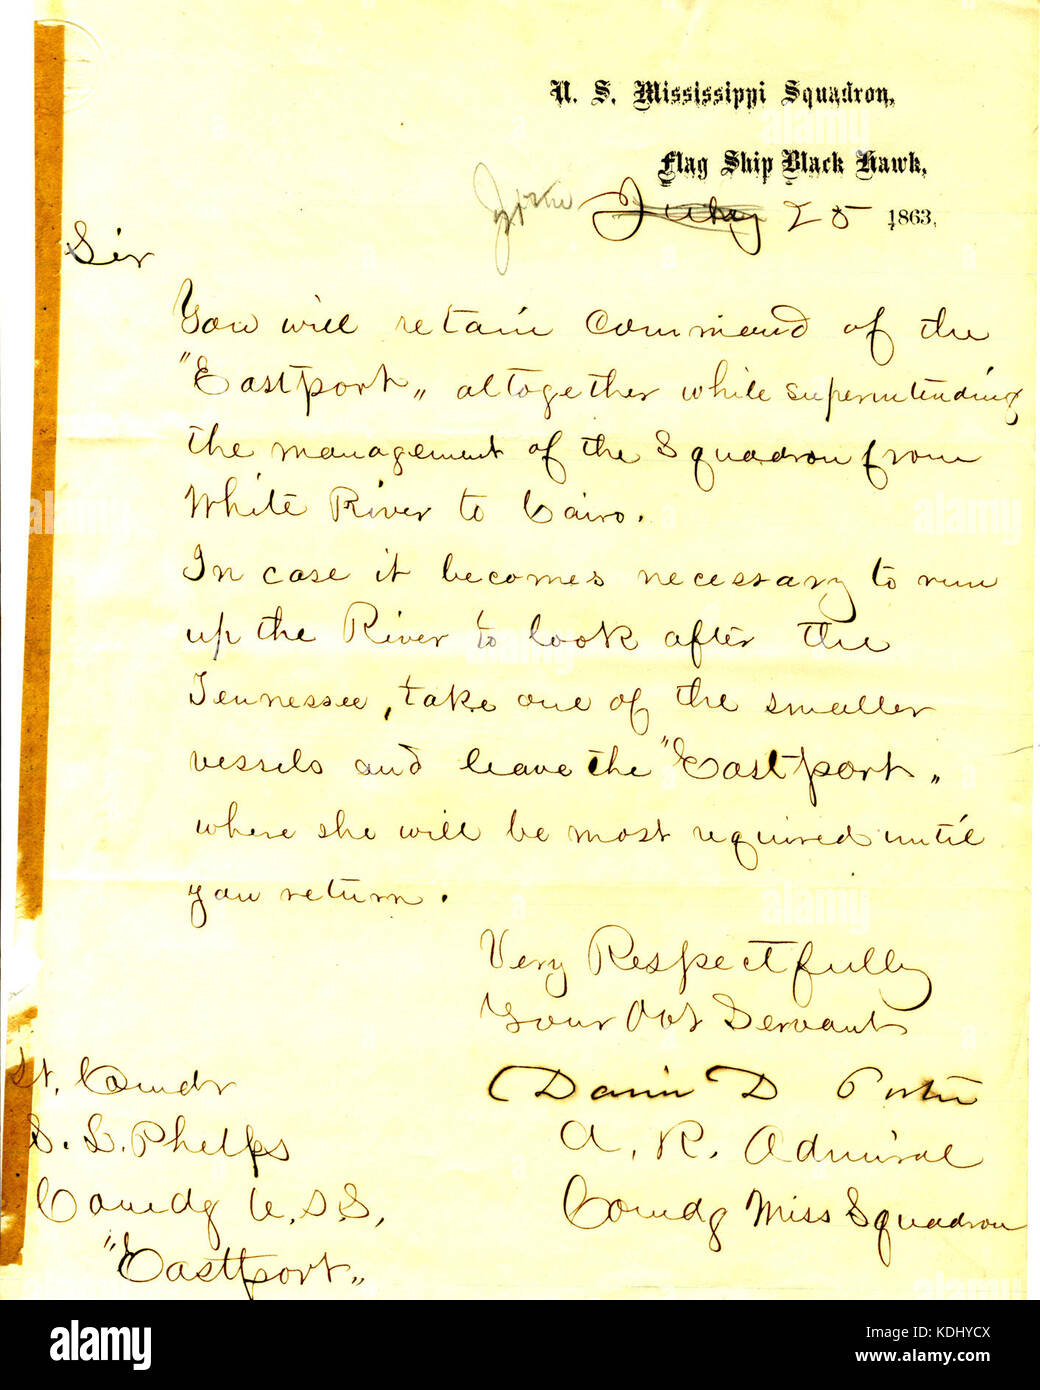 U. S. Mississippi Squadron,
Flag Ship Black Hawk,
July 25 1863.
Sir
You will retain Command of the
"Eastport" altogether while superintending
the management of the Squadron from
White River to Cairo.
In case it becomes necessary to run
up the River to look after the
Tennessee, take one of the smaller
vessels and leave the "Eastport"
where she will be most required until
you return.
Very Respectfully
Your Obt Servant
David D Porter
A. R. Admiral
Comdg Miss Squadron
Lt. Comdr
S. L. Phelps
Comdg U.S.S,
"Eastport"
alamy
Image ID: KDHYCX
www.alamy.com